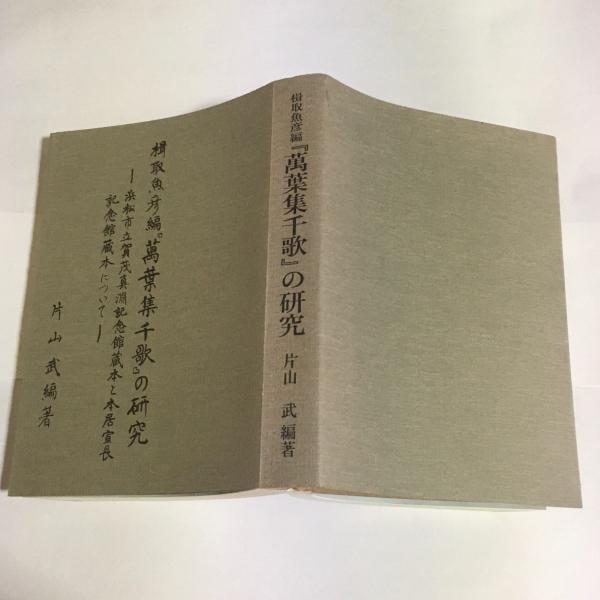 楫取魚彦編『萬葉集千歌』の研究
―浜松市立賀茂真淵記念館蔵本と本居宣長
記念館蔵本について―
片山武編著
楫取魚彦編『萬葉集千歌』の研究 片山 武 編著